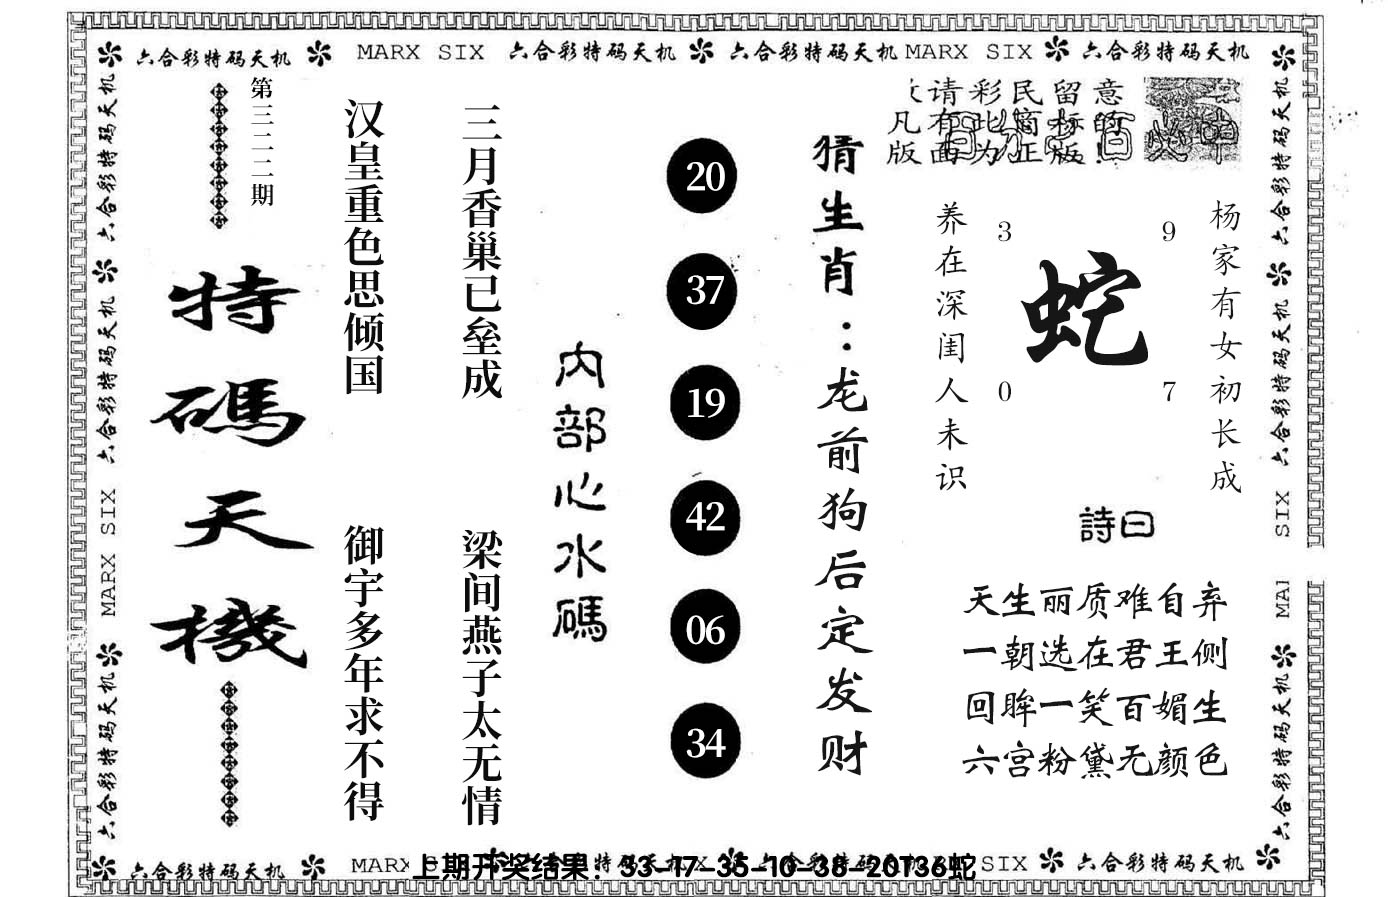 六合彩特码天机 MARX SIX 六合彩特码天机 六合彩特码天机 MARX SIX 六合彩特码天机
六合彩特码天机 六合彩特码天机 MARX SIX 六合彩特码天机
第三二二二期
特碼天機
汉皇重色思倾国
御宇多年求不得
三月香巢已垒成
梁间燕子太无情
内部心水碼
20
37
19
42
06
34
猜生肖：龙前狗后定发财
请彩民留意
凡有此商标的
版面为正版!
杨家有女初长成
养在深闺人未识
3 9
蛇
0 7
詩曰
天生丽质难自弃
一朝选在君王侧
回眸一笑百媚生
六宫粉黛无颜色
六合彩特码天机 六合彩特码天机 SIX
六合彩特码天机
六合彩特码天机 MARX
上期开奖结果：33-17-35-10-38-20T36蛇
SIX 六合彩特码天机